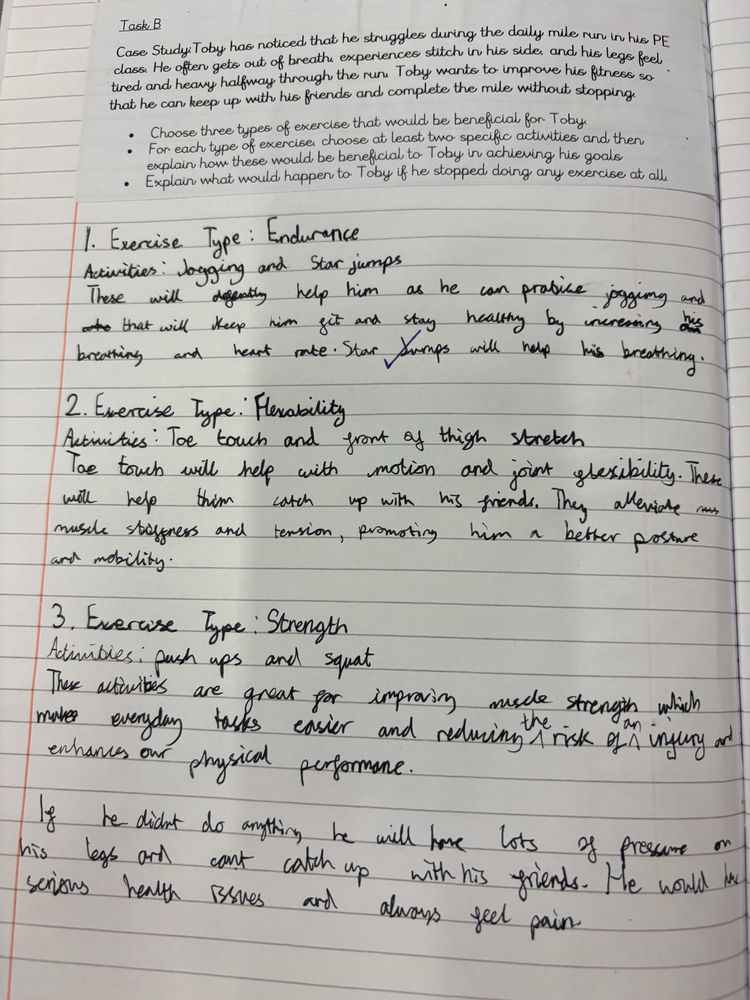 Task B
Case Study: Toby has noticed that he struggles during the daily mile run in his PE
class. He often gets out of breath, experiences stitch in his side, and his legs feel
tired and heavy halfway through the run. Toby wants to improve his fitness so
that he can keep up with his friends and complete the mile without stopping.
• Choose three types of exercise that would be beneficial for Toby.
• For each type of exercise, choose at least two specific activities and then
explain how these would be beneficial to Toby in achieving his goals
• Explain what would happen to Toby if he stopped doing any exercise at all.
1. Exercise Type: Endurance
Activities: Jogging and Star jumps
These will help him as he can pratice jogging and
that will keep him fit and stay healthy by increasing his
breathing and heart rate. Star Jumps will help his breathing.
2. Exercise Type: Flexability
Activities: Toe touch and front of thigh stretch
Toe touch will help with motion and joint flexibility. These
will help them catch up with his friends. They alleviate
muscle stiffness and tension, promoting him a better posture
and mobility.
3. Exercise Type: Strength
Activities: push ups and squat
These activities are great for improving muscle strength which
makes everyday tasks easier and reducing the risk of an injury and
enhances our physical performane.
If he didnt do anything he will have lots of pressure on
his legs and cant catch up with his friends. He would
serious health issues and always feel pain